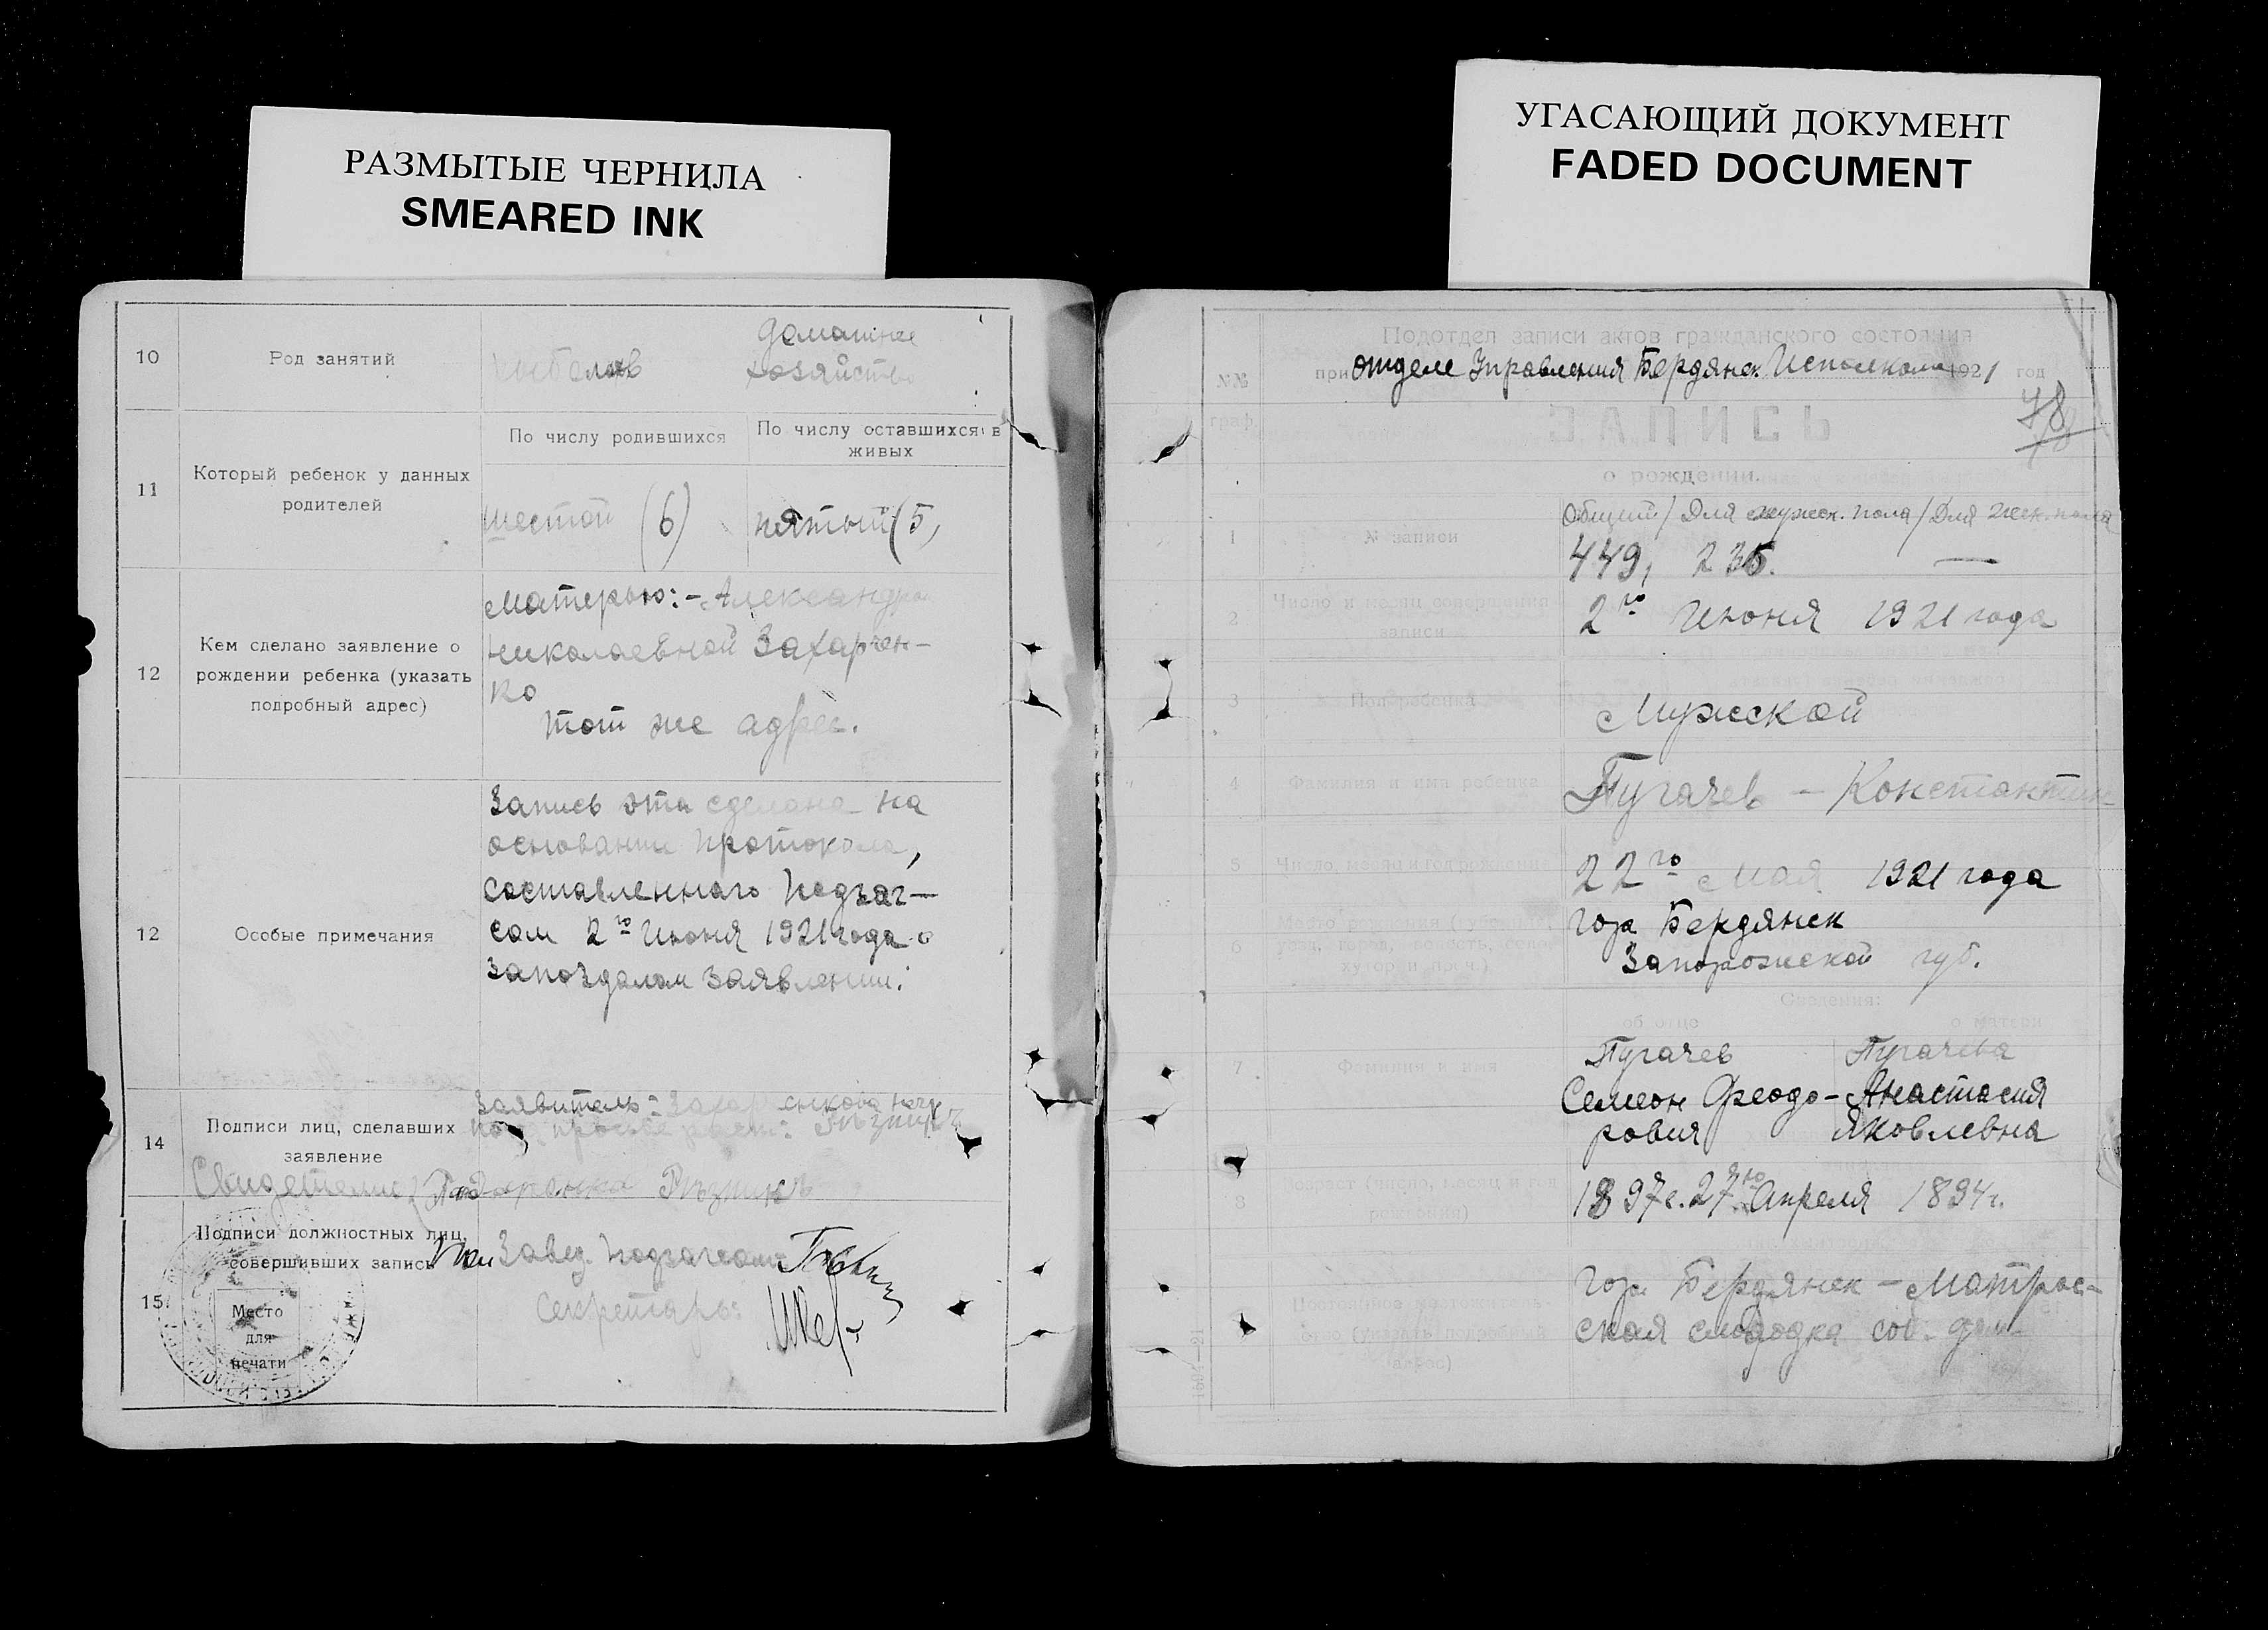 РАЗМЫТЫЕ ЧЕРНИЛА
SMEARED INK
10
Род занятий
рыболов
домашнее
хозяйство
11
Который ребенок у данных
родителей
По числу родившихся
По числу оставшихся в
живых
шестой (6)
пятый (5,
12
Кем сделано заявление о
рождении ребенка (указать
подробный адрес)
Матерью: - Александрой
Николаевной Захарчен-
ко
тот же адрес.
12
Особые примечания
Запись эта сделана на
основании протокола,
составленного Подзаг-
сом 2го Июня 1921 года о
запоздалом заявлении.
14
Подписи лиц, сделавших
заявление
Заявитель:
Свидетели
15.
Подписи должностных лиц,
совершивших запись
Место
для
печати
Завед. Подзагсом
Секретарь:
УГАСАЮЩИЙ ДОКУМЕНТ
FADED DOCUMENT
№№
граф
Подотдел записи актов гражданского состояния
при отделе Управления Бердянск. Исполкома 1921 год
78
ЗАПИСЬ
о рождении.
1
№ записи
Общий / Для мужск. пола / Для жен. пола
449, 235. —
2
Число и месяц совершения
записи
2го Июня 1921 года
3
Пол ребенка
Мужской
4
Фамилия и имя ребенка
Пугачев - Константин
5
Число, месяц и год рождения
22го Мая 1921 года
6
Место рождения (губерния,
уезд, город, волость, село,
хутор и пр.)
гор Бердянск
Запорожской губ.
Сведения:
об отце
о матери
7
Фамилия и имя
Пугачев
Семен Феодо-
ровия
Пугачева
Анастасия
Яковлевна
8
Возраст (число, месяц и год
рождения)
1897 г. 27го Апреля
1894 г.
Постоянное местожитель-
ство (указать подробный
адрес)
гор. Бердянск - Матрос-
ская слободка соб. дом